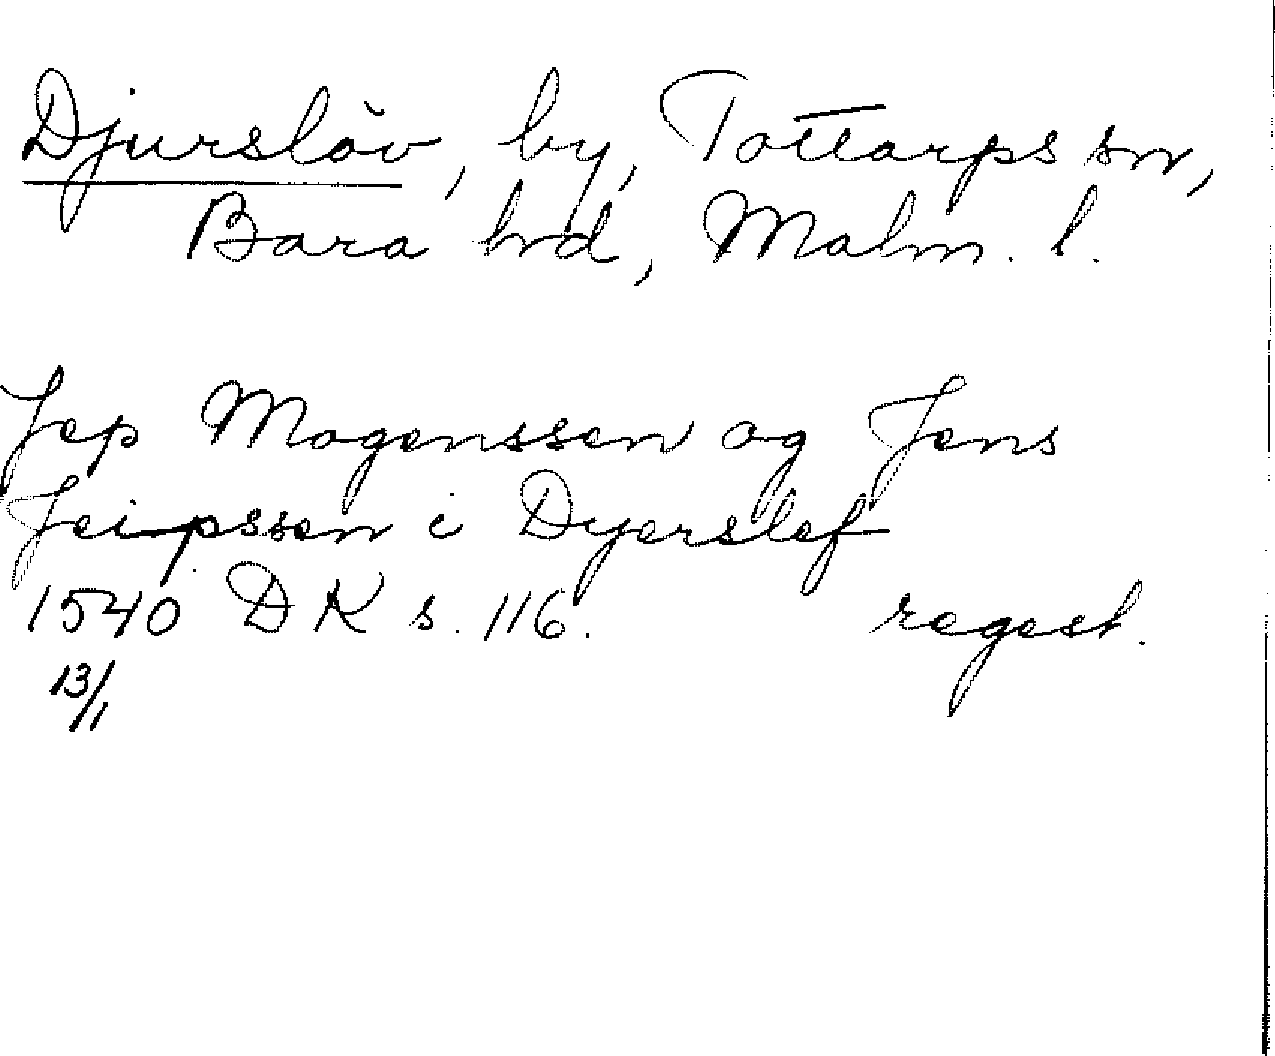 Djurslöv, by, Tottarps sn,
Bara hd, Malm. l.
Jep Mogenssen og Jens
Jeipssen i Dyerslef
1540 DK s. 116. regest.
13/1